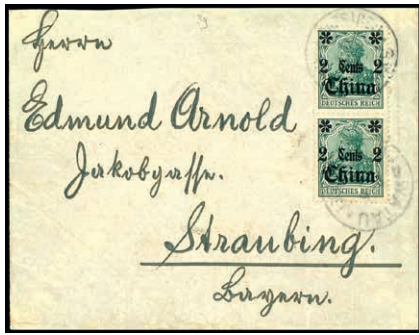 Herrn
Edmund Arnold
Jakobgasse.
Straubing.
Bayern.
2 Cents 2
China
DEUTSCHES REICH
2 Cents 2
China
DEUTSCHES REICH
SWATAU